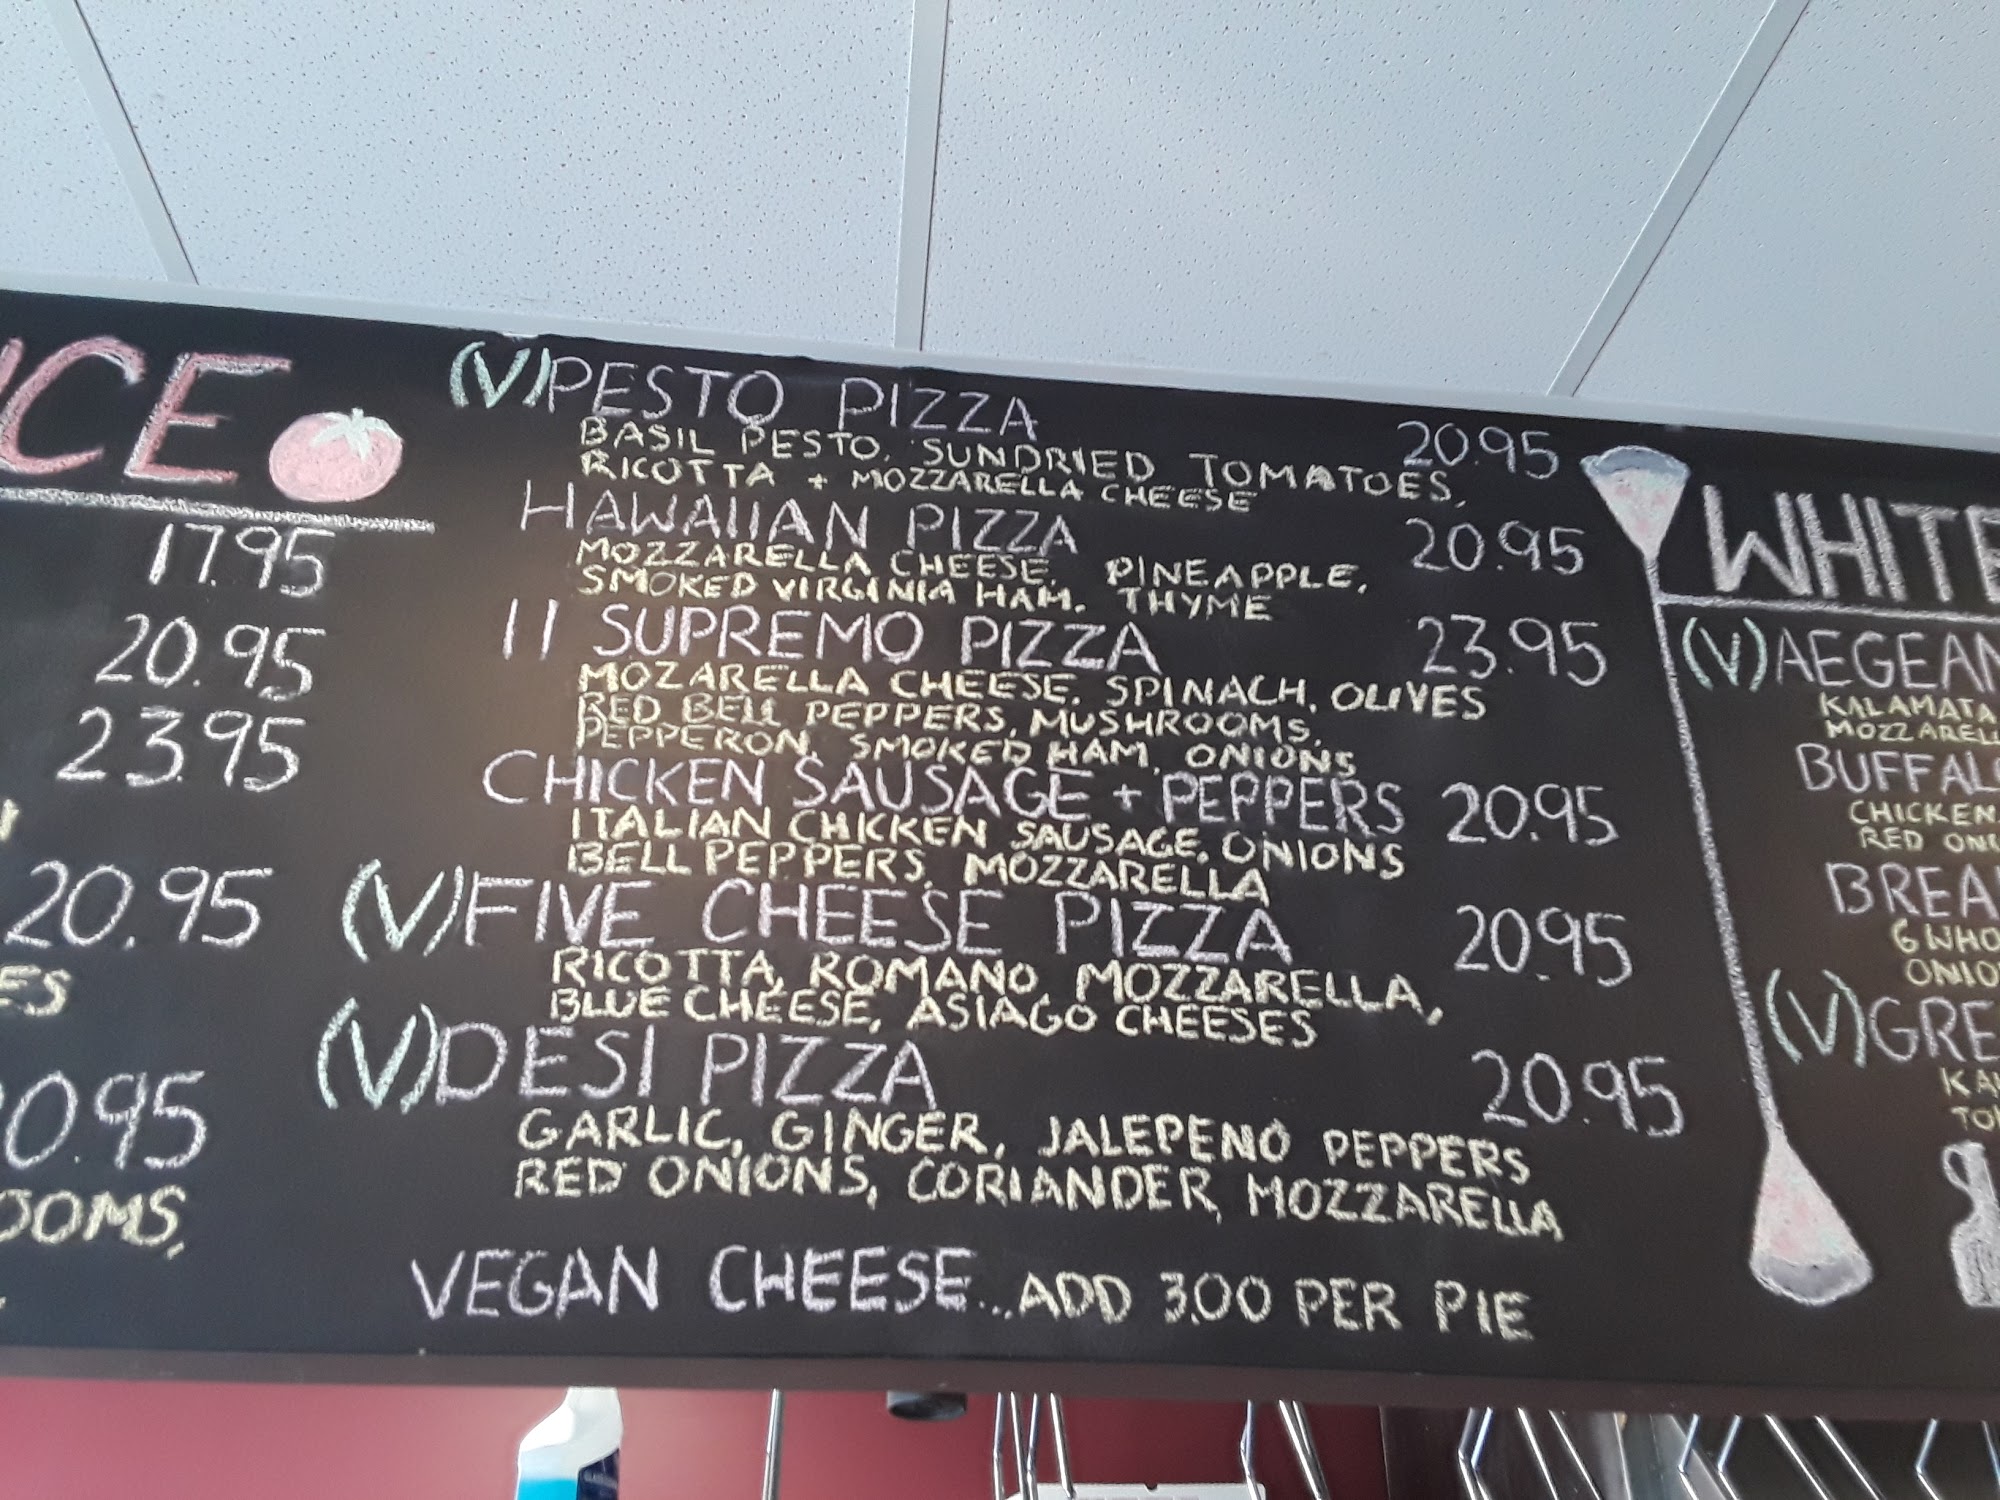 17.95
20.95
23.95
20.95
20.95
(V) PESTO PIZZA 20.95
BASIL PESTO, SUNDRIED TOMATOES,
RICOTTA + MOZZARELLA CHEESE
HAWAIIAN PIZZA 20.95
MOZZARELLA CHEESE, PINEAPPLE,
SMOKED VIRGINIA HAM, THYME
II SUPREMO PIZZA 23.95
MOZARELLA CHEESE, SPINACH, OLIVES
RED BELL PEPPERS, MUSHROOMS,
PEPPERON, SMOKED HAM, ONIONS
CHICKEN SAUSAGE + PEPPERS 20.95
ITALIAN CHICKEN SAUSAGE, ONIONS
BELL PEPPERS, MOZZARELLA
(V) FIVE CHEESE PIZZA 20.95
RICOTTA, ROMANO, MOZZARELLA,
BLUE CHEESE, ASIAGO CHEESES
(V) DESI PIZZA 20.95
GARLIC, GINGER, JALEPENO PEPPERS
RED ONIONS, CORIANDER, MOZZARELLA
VEGAN CHEESE...ADD 3.00 PER PIE
WHITE
(V) AEGEAN
KALAMATA
BUFFALO
CHICKEN,
RED
(V)